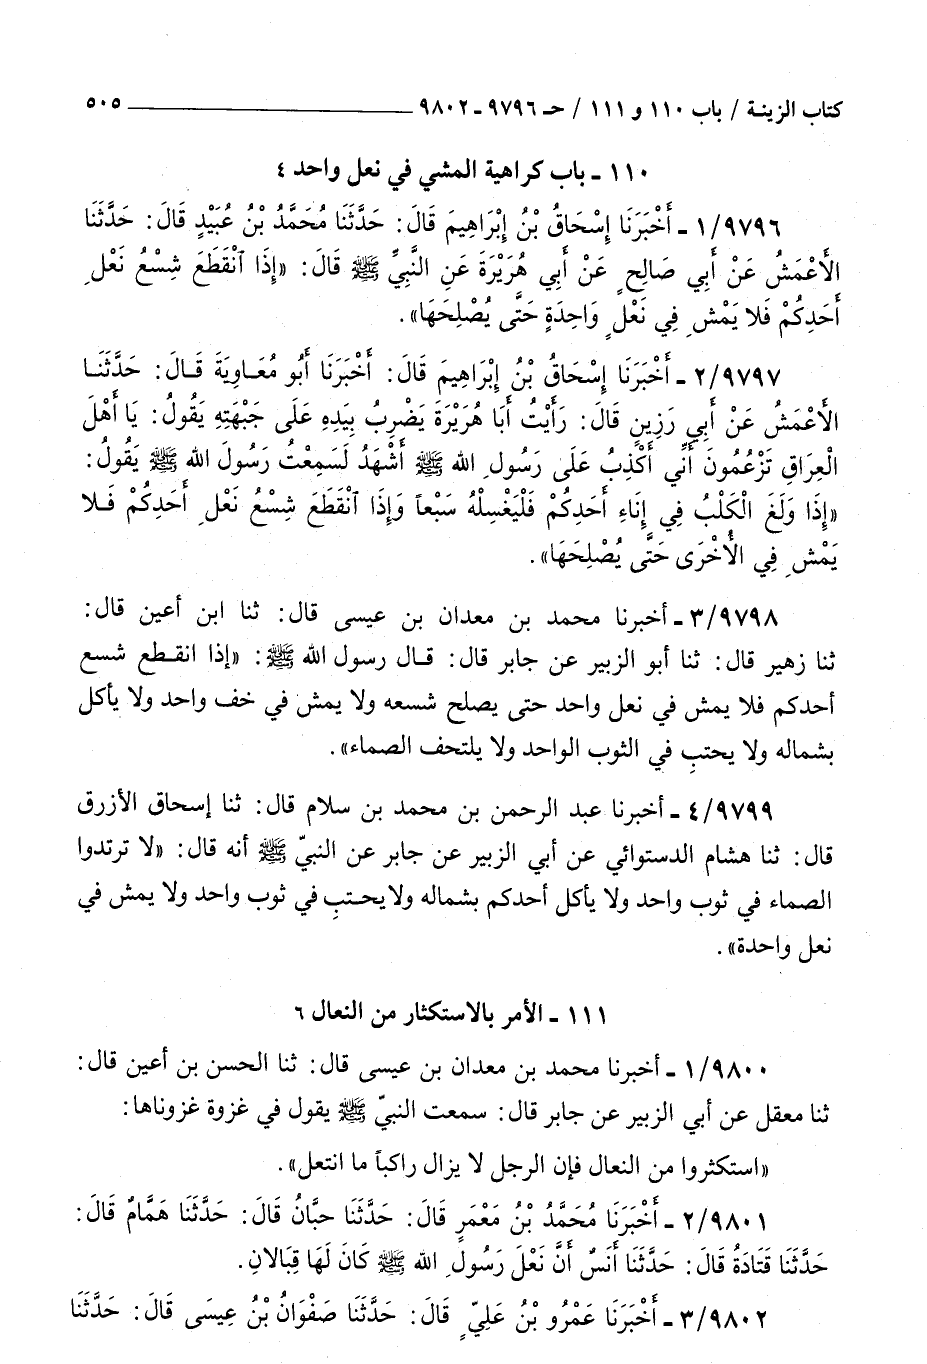 كتاب الزينة / باب ١١٠ و ١١١ / حـ ٩٧٩٦ ـ ٩٨٠٢ ٥٠٥
١١٠ ـ باب كراهية المشي في نعل واحد ٤
١/٩٧٩٦ ـ أَخْبَرَنَا إِسْحَاقُ بْنُ إِبْرَاهِيمَ قَالَ: حَدَّثَنَا مُحَمَّدُ بْنُ عُبَيْدٍ قَالَ: حَدَّثَنَا
الْأَعْمَشُ عَنْ أَبِي صَالِحٍ عَنْ أَبِي هُرَيْرَةَ عَنِ النَّبِيِّ ﷺ قَالَ: «إِذَا ٱنْقَطَعَ شِسْعُ نَعْلِ
أَحَدِكُمْ فَلَا يَمْشِ فِي نَعْلٍ وَاحِدَةٍ حَتَّى يُصْلِحَهَا».
٢/٩٧٩٧ ـ أَخْبَرَنَا إِسْحَاقُ بْنُ إِبْرَاهِيمَ قَالَ: أَخْبَرَنَا أَبُو مُعَاوِيَةَ قَالَ: حَدَّثَنَا
الْأَعْمَشُ عَنْ أَبِي رَزِينٍ قَالَ: رَأَيْتُ أَبَا هُرَيْرَةَ يَضْرِبُ بِيَدِهِ عَلَى جَبْهَتِهِ يَقُولُ: يَا أَهْلَ
الْعِرَاقِ تَزْعُمُونَ أَنِّي أَكْذِبُ عَلَى رَسُولِ الله ﷺ أَشْهَدُ لَسَمِعْتُ رَسُولَ الله ﷺ يَقُولُ:
«إِذَا وَلَغَ الْكَلْبُ فِي إِنَاءِ أَحَدِكُمْ فَلْيَغْسِلْهُ سَبْعاً وَإِذَا ٱنْقَطَعَ شِسْعُ نَعْلِ أَحَدِكُمْ فَلَا
يَمْشِ فِي الْأُخْرَى حَتَّى يُصْلِحَهَا».
٣/٩٧٩٨ ـ أخبرنا محمد بن معدان بن عيسى قال: ثنا ابن أعين قال:
ثنا زهير قال: ثنا أبو الزبير عن جابر قال: قال رسول الله ﷺ: «إذا انقطع شسع
أحدكم فلا يمش في نعل واحد حتى يصلح شسعه ولا يمش في خف واحد ولا يأكل
بشماله ولا يحتبِ في الثوب الواحد ولا يلتحف الصماء».
٤/٩٧٩٩ ـ أخبرنا عبد الرحمن بن محمد بن سلام قال: ثنا إسحاق الأزرق
قال: ثنا هشام الدستوائي عن أبي الزبير عن جابر عن النبيّ ﷺ أنه قال: «لا ترتدوا
الصماء في ثوب واحد ولا يأكل أحدكم بشماله ولا يحتبِ في ثوب واحد ولا يمش في
نعل واحدة».
١١١ ـ الأمر بالاستكثار من النعال ٦
١/٩٨٠٠ ـ أخبرنا محمد بن معدان بن عيسى قال: ثنا الحسن بن أعين قال:
ثنا معقل عن أبي الزبير عن جابر قال: سمعت النبيّ ﷺ يقول في غزوة غزوناها:
«استكثروا من النعال فإن الرجل لا يزال راكباً ما انتعل».
٢/٩٨٠١ ـ أَخْبَرَنَا مُحَمَّدُ بْنُ مَعْمَرٍ قَالَ: حَدَّثَنَا حبَّانُ قَالَ: حَدَّثَنَا هَمَّامٌ قَالَ:
حَدَّثَنَا قَتَادَةُ قَالَ: حَدَّثَنَا أَنَسٌ أَنَّ نَعْلَ رَسُولِ الله ﷺ كَانَ لَهَا قِبَالَانِ.
٣/٩٨٠٢ ـ أَخْبَرَنَا عَمْرُو بْنُ عَلِيٍّ قَالَ: حَدَّثَنَا صَفْوَانُ بْنُ عِيسَى قَالَ: حَدَّثَنَا